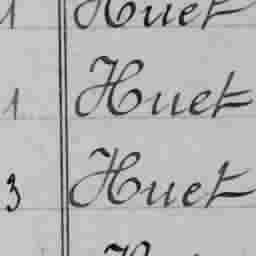 1 Huet
1 Huet
3 Huet